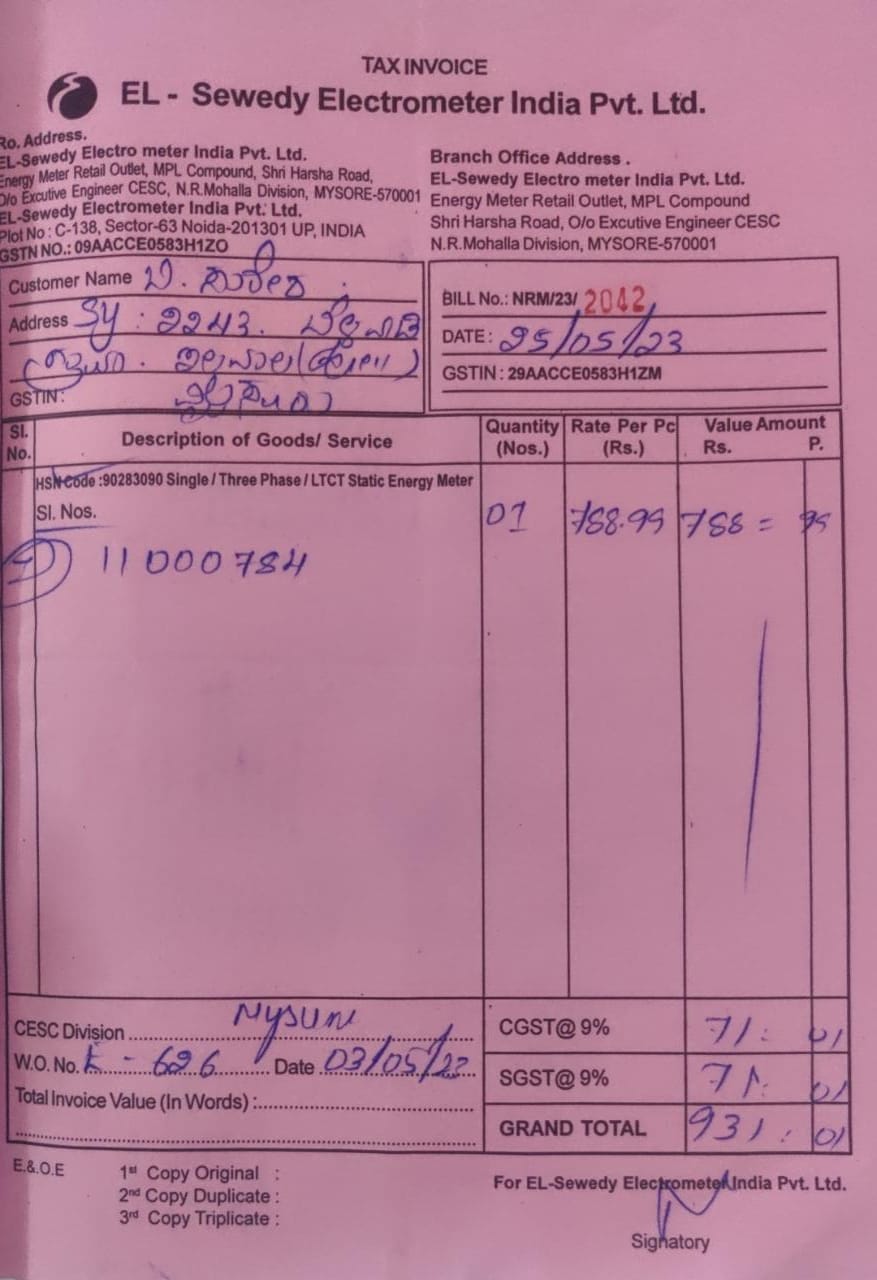 TAX INVOICE
EL - Sewedy Electrometer India Pvt. Ltd.
Ro. Address.
EL-Sewedy Electro meter India Pvt. Ltd.
Energy Meter Retail Outlet, MPL Compound, Shri Harsha Road,
O/o Excutive Engineer CESC, N.R.Mohalla Division, MYSORE-570001
EL-Sewedy Electrometer India Pvt. Ltd.
Plot No : C-138, Sector-63 Noida-201301 UP, INDIA
GSTN NO.: 09AACCE0583H1ZO
Branch Office Address .
EL-Sewedy Electro meter India Pvt. Ltd.
Energy Meter Retail Outlet, MPL Compound
Shri Harsha Road, O/o Excutive Engineer CESC
N.R.Mohalla Division, MYSORE-570001
Customer Name
Address Sy : 2243.
GSTIN:
BILL No.: NRM/23/ 2042
DATE : 25/05/23
GSTIN : 29AACCE0583H1ZM
Sl. No. Description of Goods/ Service Quantity (Nos.) Rate Per Pc (Rs.) Value Amount Rs. P.
HSN Code :90283090 Single / Three Phase / LTCT Static Energy Meter
Sl. Nos. 01 788.99 788 = 99
11000784
CESC Division Mysuru CGST@ 9% 71 : 01
W.O. No. 626 Date 03/05/23 SGST@ 9% 71. 01
Total Invoice Value (In Words) :
GRAND TOTAL 931 . 01
E.&.O.E
1st Copy Original :
2nd Copy Duplicate :
3rd Copy Triplicate :
For EL-Sewedy Electrometer India Pvt. Ltd.
Signatory